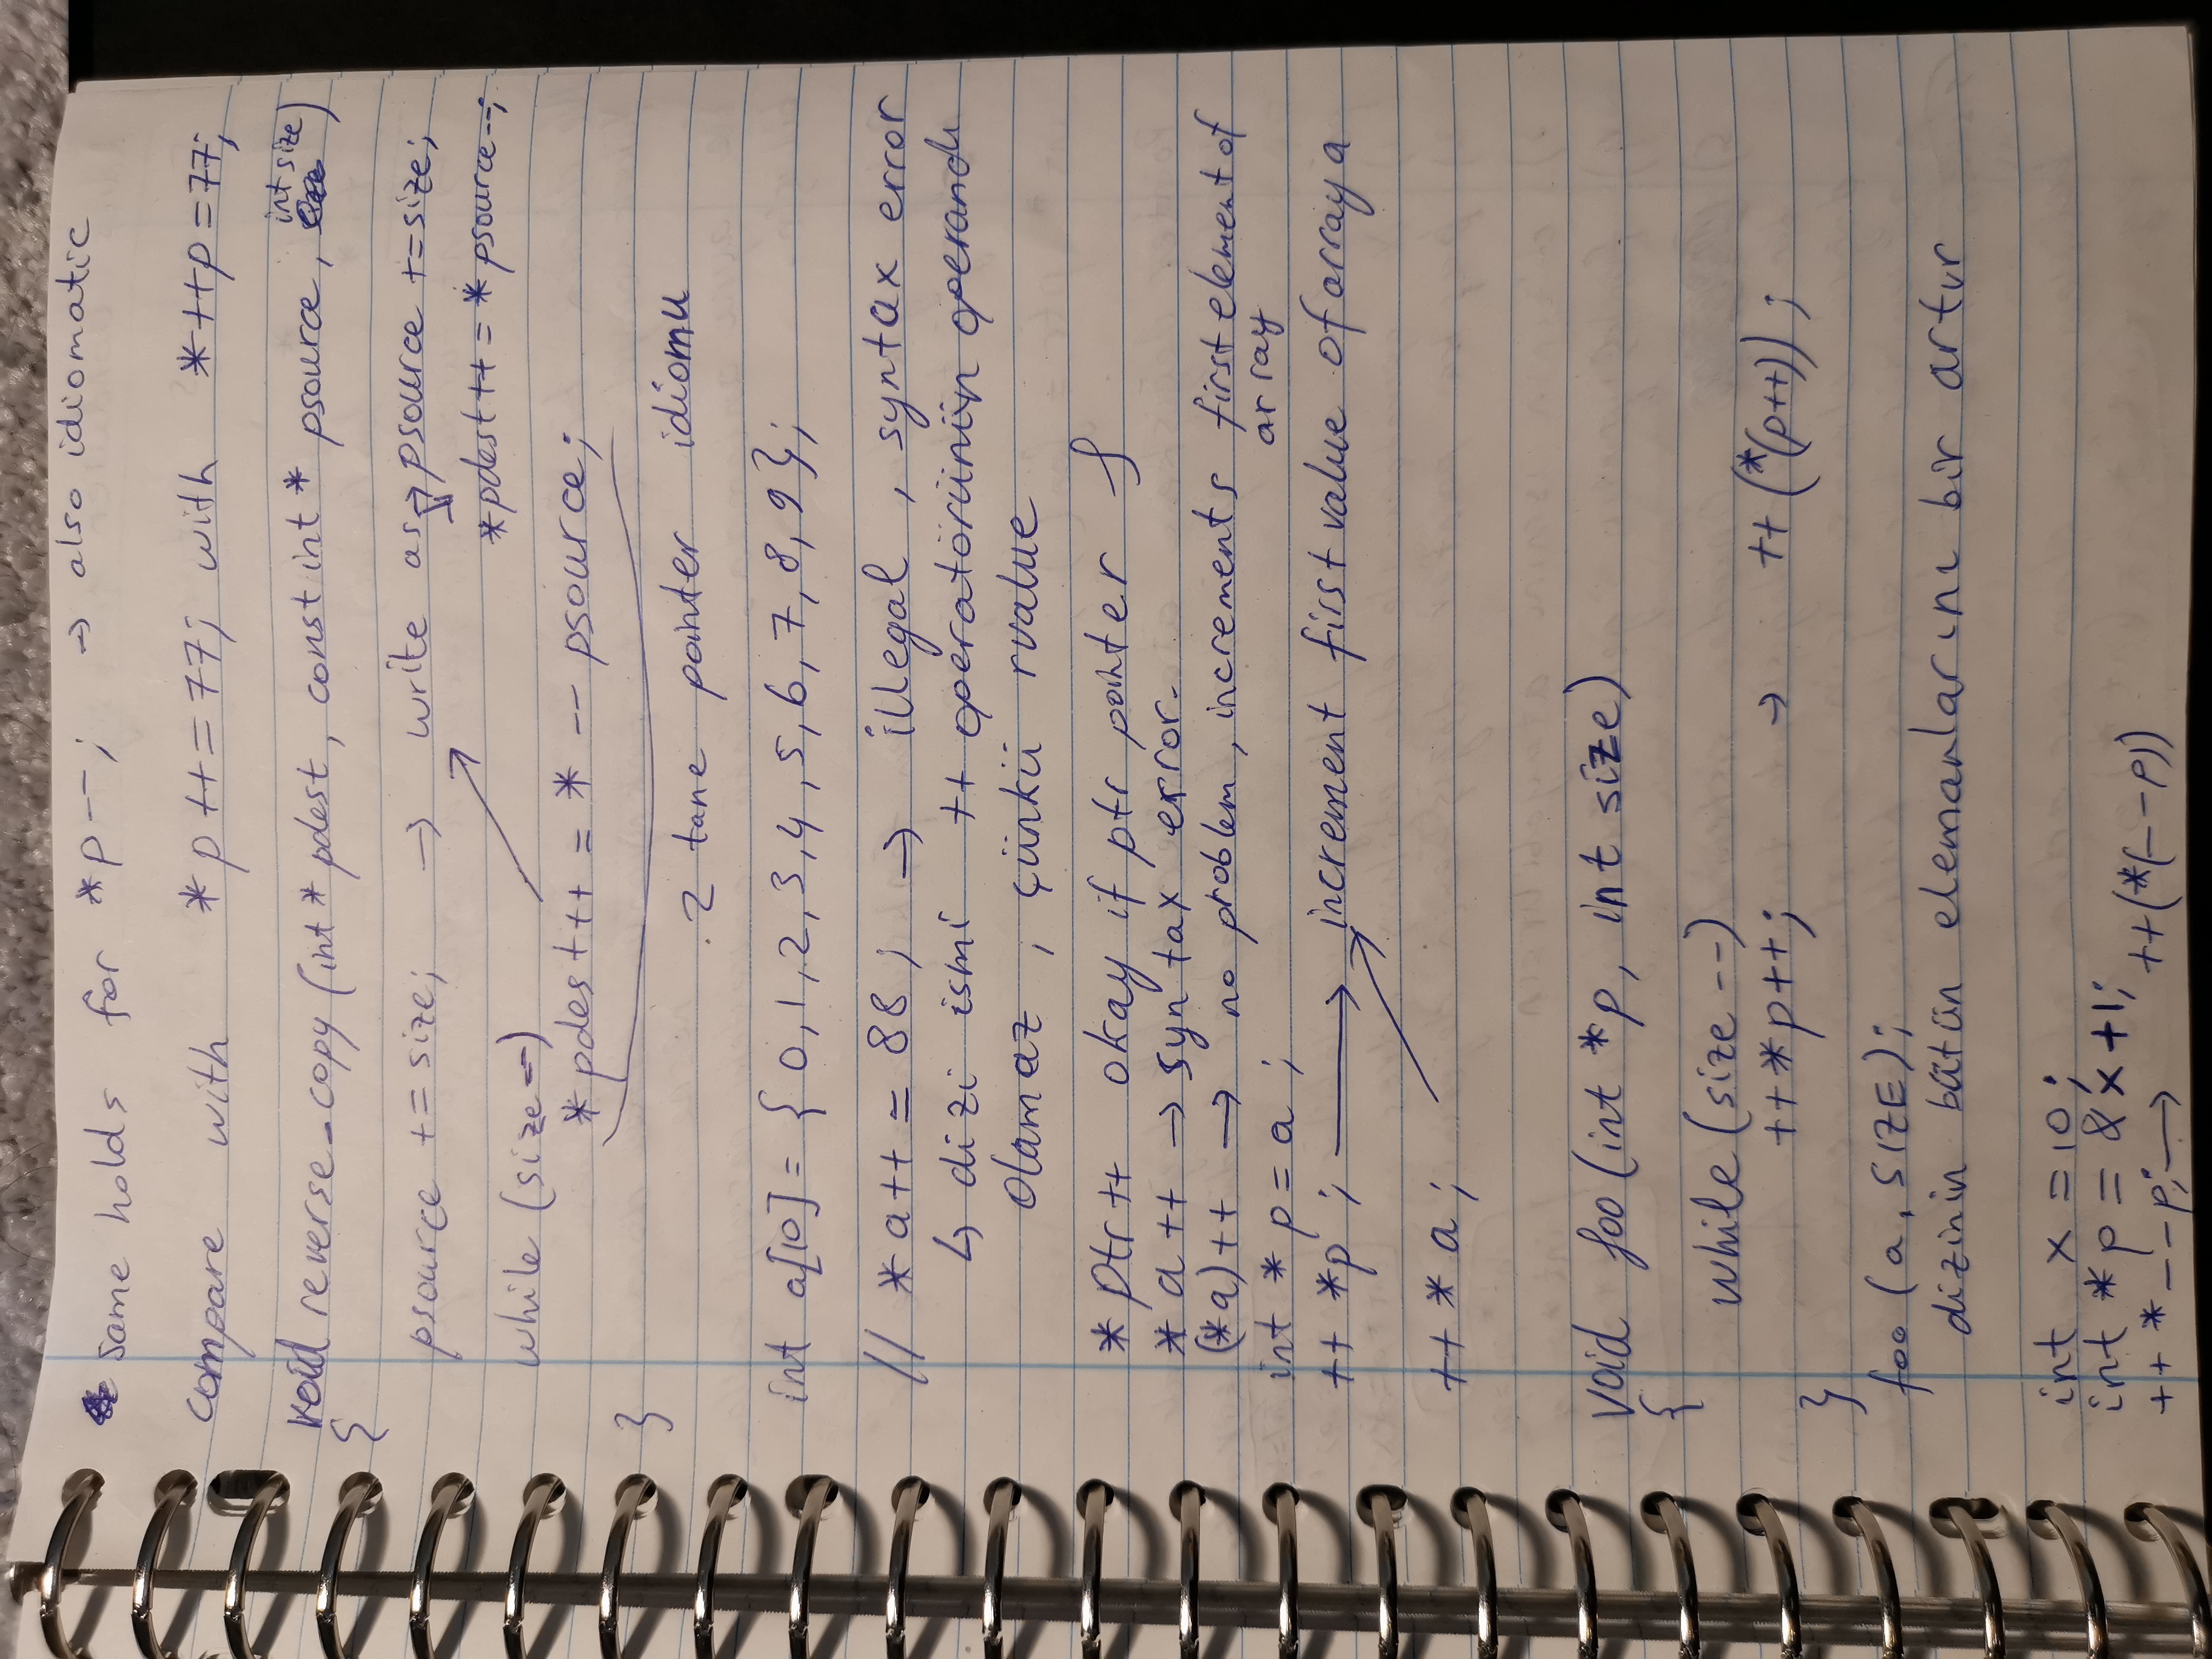 same holds for *p--; → also idiomatic
compare with *p++=77; with *++p=77;
void reverse_copy(int* pdest, const int* psource, int size)
{
psource += size; → write as → psource +=size;
*pdest++ = *psource--;
while (size--)
*pdest++ = *--psource;
}
2 tane pointer idiomu
int a[10] = { 0,1,2,3,4,5,6,7,8,9};
// *a++ = 88; → illegal, syntax error
↳ dizi ismi ++ operatörünün operandı
olamaz, çünkü rvalue
*ptr++ okay if ptr pointer
*a++ → syntax error.
(*a)++ → no problem, increments first element of
array
int *p=a;
++ *p; → increment first value of array a
++ *a;
void foo(int *p, int size)
{
while (size --)
++*p++; → ++(*(p++));
}
foo(a, SIZE);
dizinin bütün elemanlarını bir artır
int x = 10;
int *p = &x+1;
++*--p; → ++(*(--p))